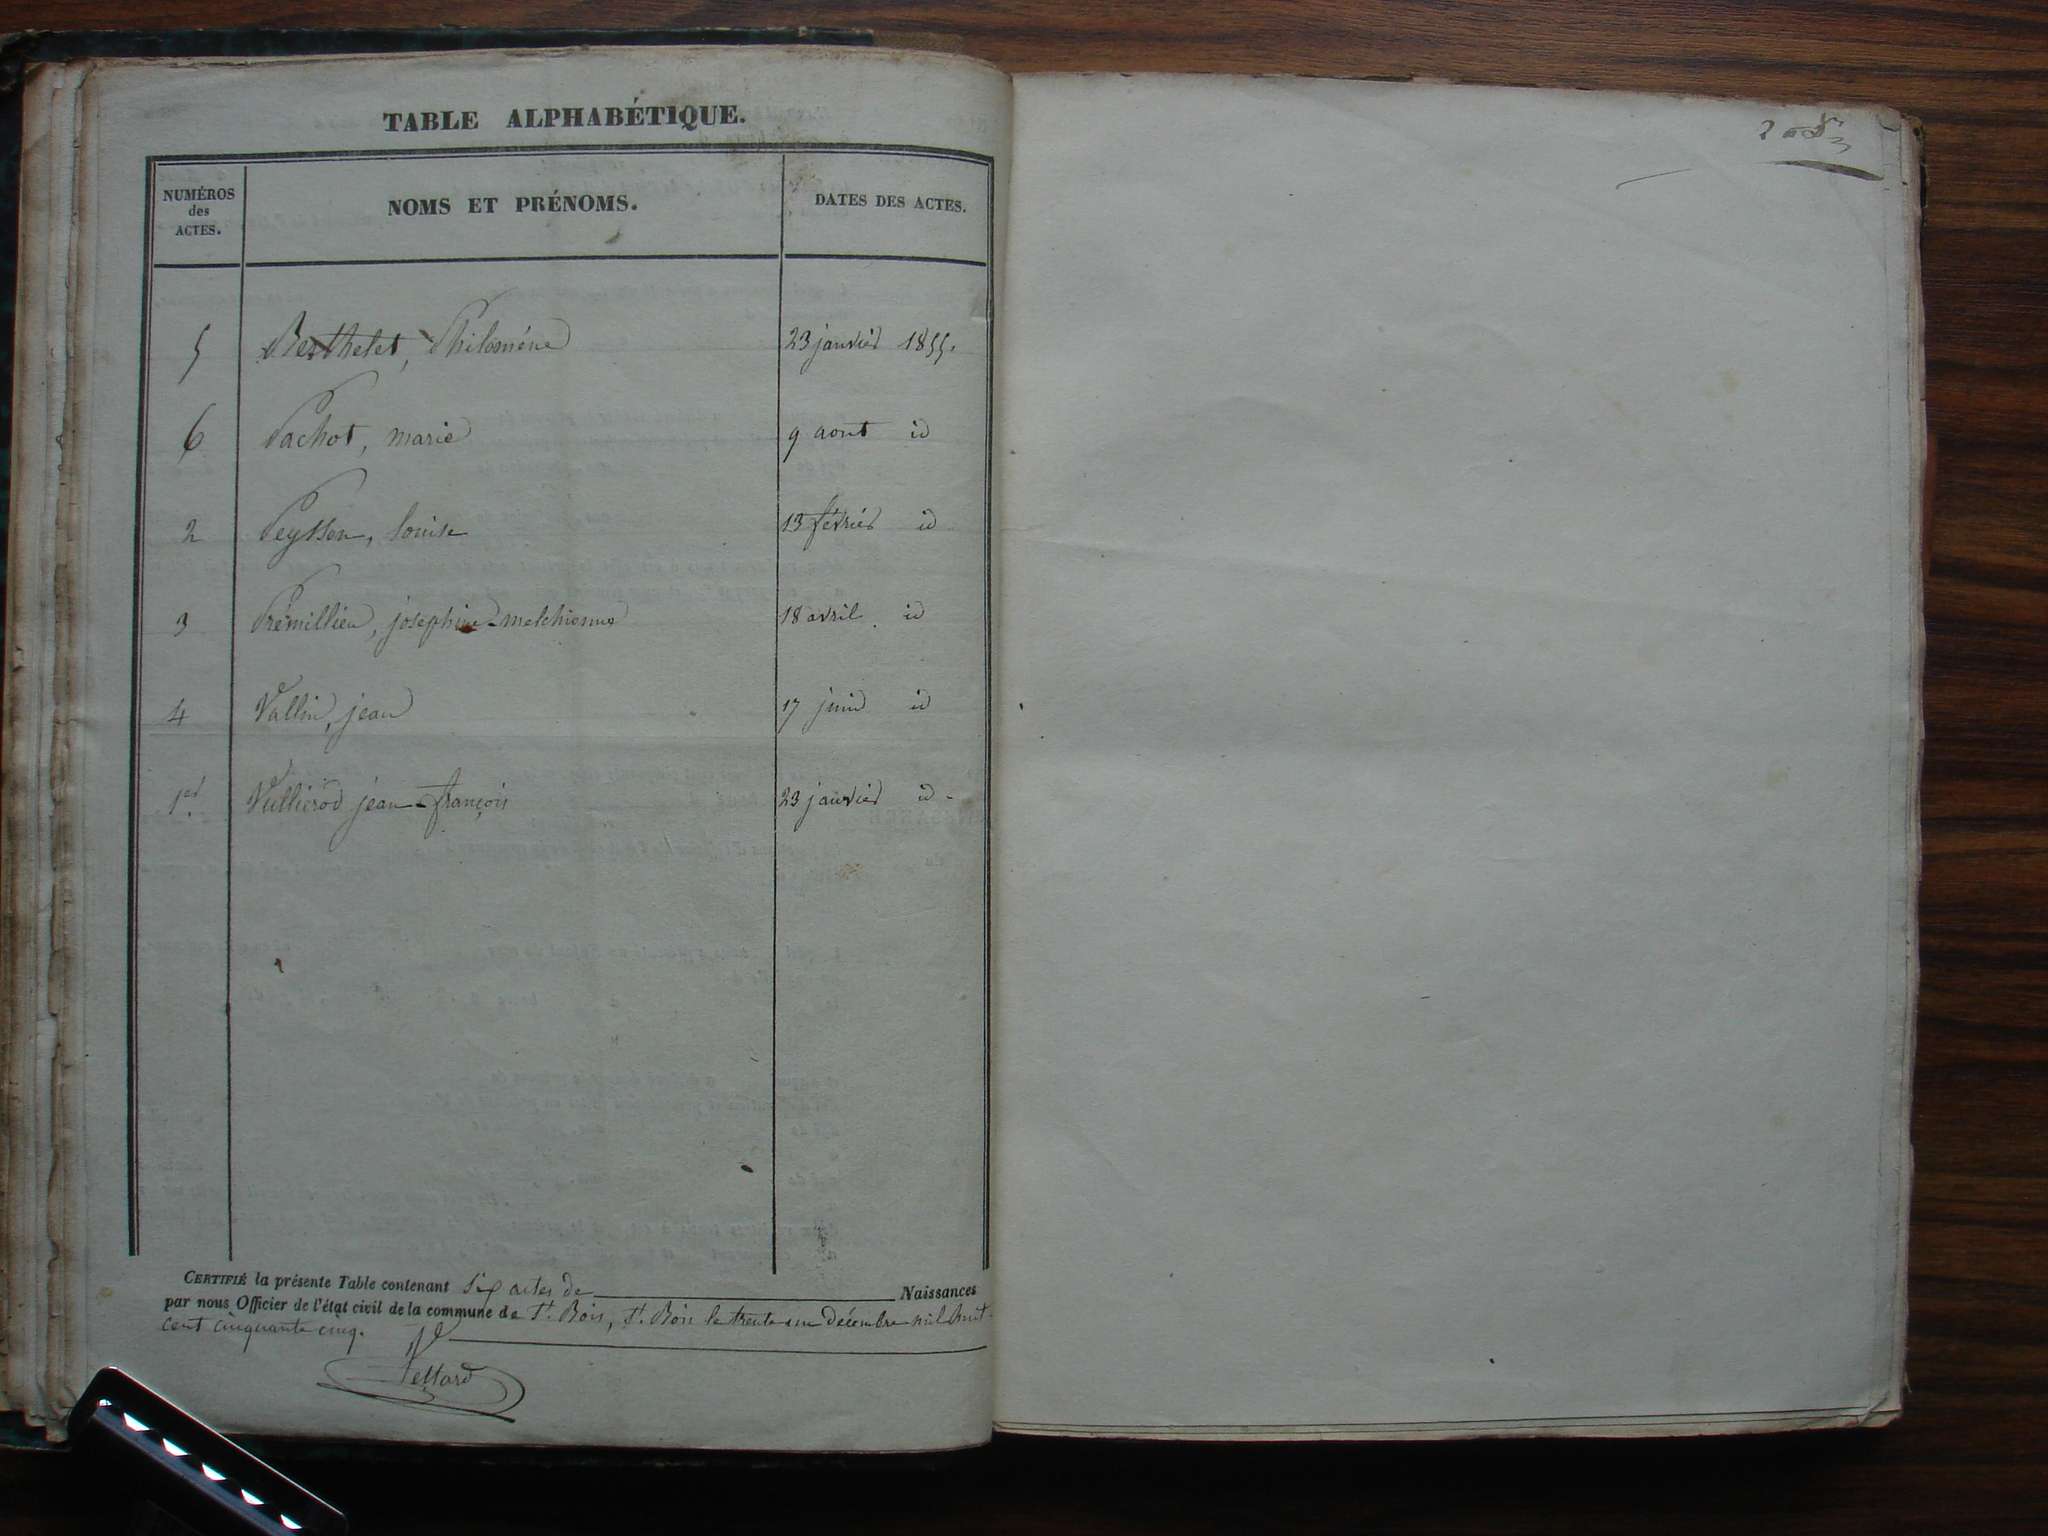 TABLE ALPHABÉTIQUE.
NUMÉROS des ACTES.
NOMS ET PRÉNOMS.
DATES DES ACTES.
5 Berthelet, Philoméne 23 janvier 1855.
6 Pachot, marie 9 aout id
2 Peysson, louise 13 février id
3 Prémillieu, joséphine-melchionne 18 avril id
4 Vallin, jean 17 juin id
1er Vullierod jean-françois 23 janvier id
CERTIFIÉ la présente Table contenant six actes de Naissances
par nous Officier de l'état civil de la commune de St. Bois, St. Bois le trente un décembre mil huit
cent cinquante cinq.